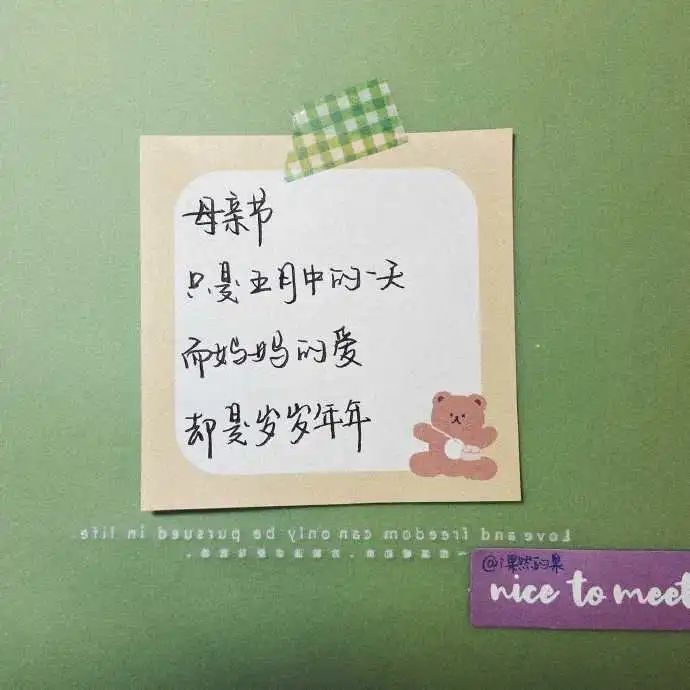 母亲节
只是五月中的一天
而妈妈的爱
却是岁岁年年
Love and freedom can only be pursued in life.
@i果然的果
nice to meet